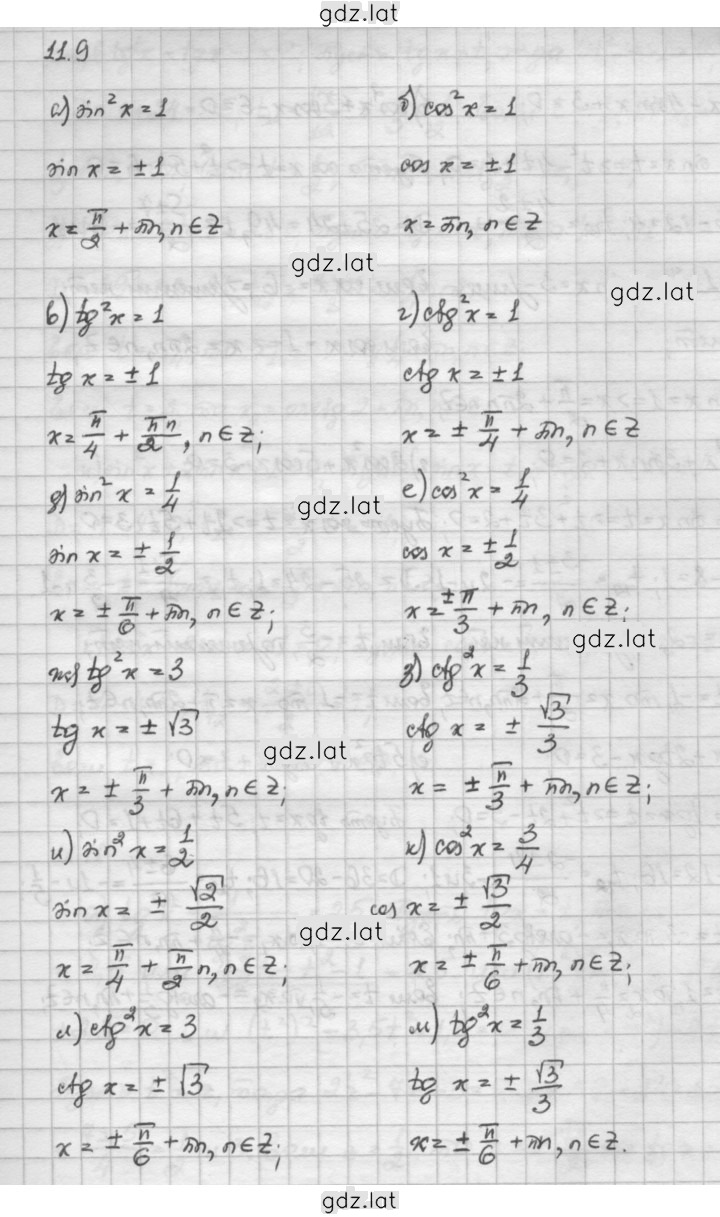 gdz.lat
11.9
а) sin²x = 1
sin x = ± 1
x = π/2 + πn, n ∈ Z
б) cos²x = 1
cos x = ± 1
x = πn, n ∈ Z
gdz.lat
gdz.lat
в) tg²x = 1
tg x = ± 1
x = π/4 + πn/2, n ∈ Z;
г) ctg²x = 1
ctg x = ± 1
x = ± π/4 + πn, n ∈ Z
gdz.lat
д) sin²x = 1/4
sin x = ± 1/2
x = ± π/6 + πn, n ∈ Z;
е) cos²x = 1/4
cos x = ± 1/2
x = ± π/3 + πn, n ∈ Z;
gdz.lat
ж) tg²x = 3
tg x = ± √3
x = ± π/3 + πn, n ∈ Z;
з) ctg²x = 1/3
ctg x = ± √3/3
x = ± π/3 + πn, n ∈ Z;
gdz.lat
и) sin²x = 1/2
sin x = ± √2/2
x = π/4 + π/2 n, n ∈ Z;
к) cos²x = 3/4
cos x = ± √3/2
x = ± π/6 + πn, n ∈ Z;
gdz.lat
л) ctg²x = 3
ctg x = ± √3
x = ± π/6 + πn, n ∈ Z;
м) tg²x = 1/3
tg x = ± √3/3
x = ± π/6 + πn, n ∈ Z.
gdz.lat